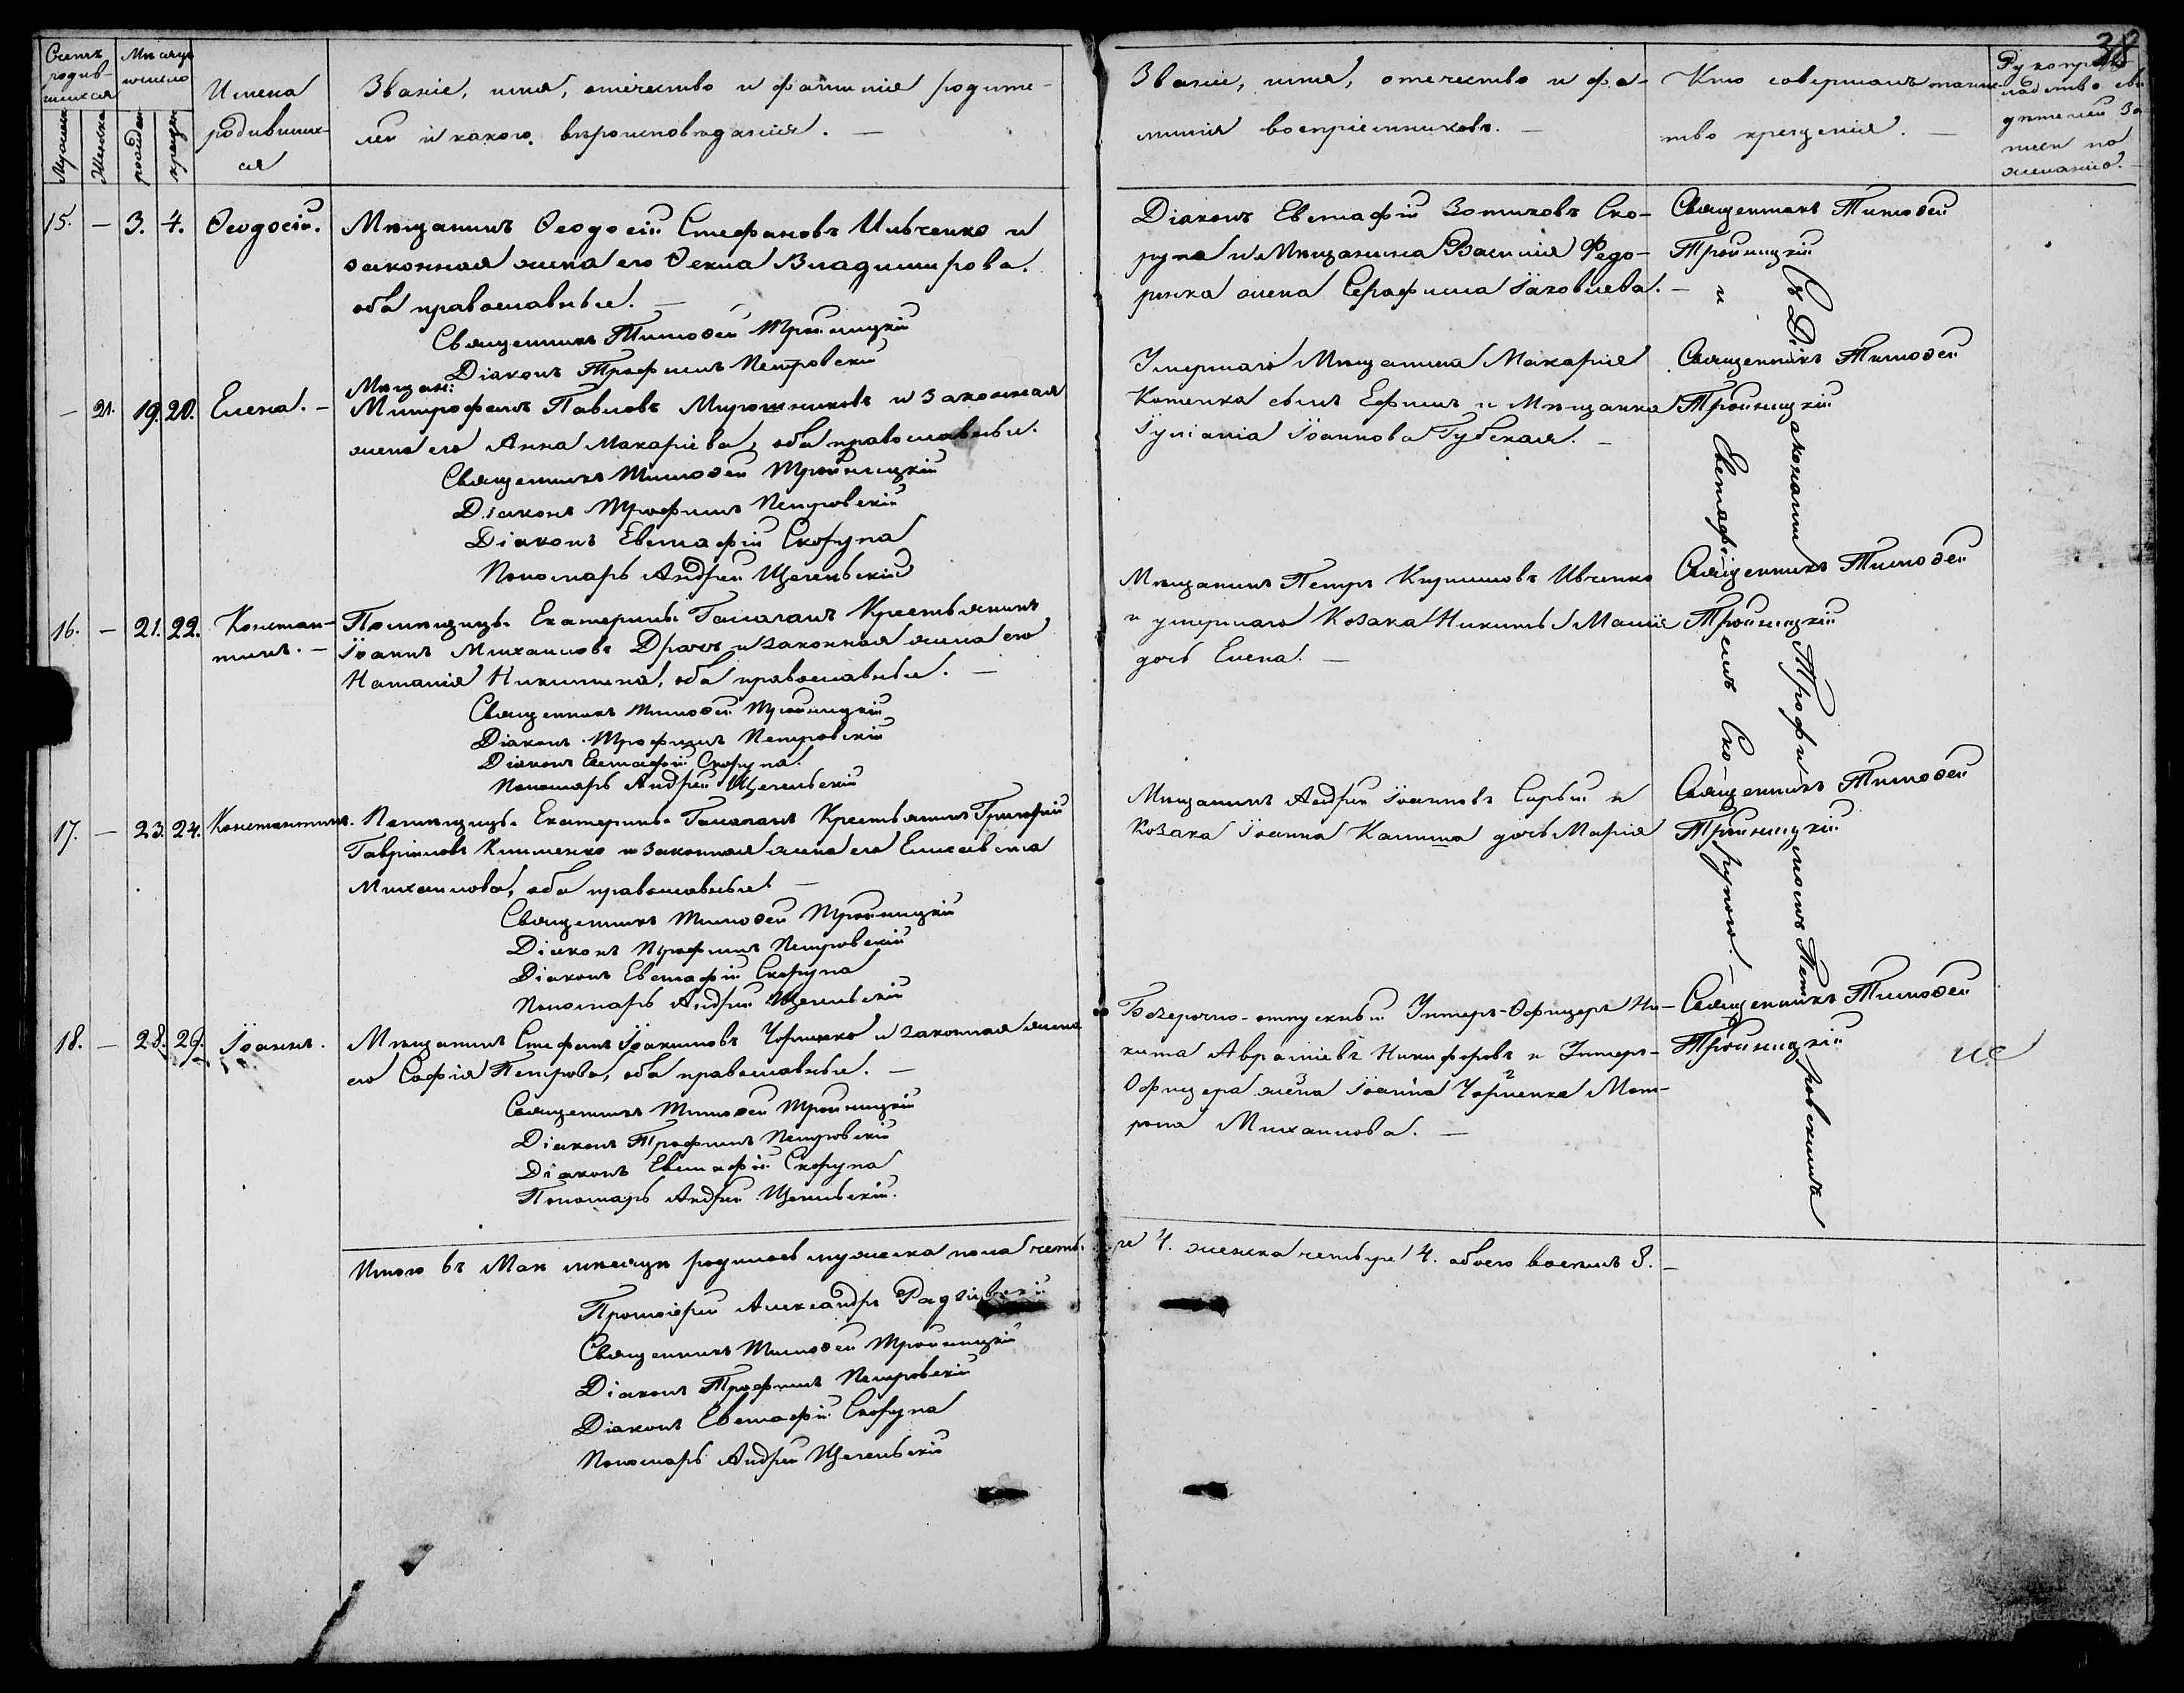 38
Счетъ родив-
шихся
Мужеска
Женска
Мѣсяцъ
и число
рожден
крещен
Имена
родивших-
ся
Званіе, имя, отечество и фамилія родите-
лей и какого вѣроисповѣданія. —
Званіе, имя, отечество и фа-
милія воспріемниковъ. —
Кто совершалъ таин-
ство крещенія. —
15. — 3. 4. Ѳеодосій.
Мѣщанинъ Ѳеодосій Стефановъ Ивченко и
законная жена его Ѳекла Владимирова.
оба православные. —
Священникъ Тимоѳей Тройницкій
Діаконъ Трофимъ Петровскій
Діаконъ Евстафій Зотиковъ Ско-
рупа и Мѣщанина Василія Федо-
ренка жена Серафима Іаковлева. —
Священникъ Тимоѳей
Тройницкій
— 21. 19. 20. Елена. —
Мѣщан:
Митрофанъ Павловъ Мирошниковъ и законная
жена его Анна Макаріева, оба православные.
Священникъ Тимоѳей Тройницкій
Діаконъ Трофимъ Петровскій
Діаконъ Евстафій Скорупа
Пономарь Андрей Щегельскій
Умершаго Мѣщанина Макарія
Котенка сынъ Ефимъ и Мѣщанка
Іуліанія Іоаннова Губская. —
Священникъ Тимоѳей
Тройницкій
16. — 21. 22. Констан-
тинъ. —
Помѣщицы Екатерины Галаганъ Крестьянинъ
Іоаннъ Михаиловъ Драчъ и законная жена его
Наталія Никитина, оба православные. —
Священникъ Тимоѳей Тройницкій
Діаконъ Трофимъ Петровскій
Діаконъ Евстафій Скорупа.
Пономарь Андрей Щегельскій
Мѣщанинъ Петръ Кириловъ Ивченко
и умершаго Козака Никиты Малія
дочь Елена. —
Священникъ Тимоѳей
Тройницкій
17. — 23. 24. Константинъ.
Помѣщицы Екатерины Галаганъ Крестьянинъ Григорій
Гавріиловъ Клименко и законная жена его Елисавета
Михаилова, оба православные —
Священникъ Тимоѳей Тройницкій
Діаконъ Трофимъ Петровскій
Діаконъ Евстафій Скорупа
Пономарь Андрей Щегельскій
Мѣщанинъ Андрей Іоанновъ Сарый и
Козака Іоанна Калиша дочь Марія
Священникъ Тимоѳей
Тройницкій
18. — 28. 29. Іоаннъ.
Мѣщанинъ Стефанъ Іоакимовъ Черненко и законная жена
его Софія Петрова, оба православные. —
Священникъ Тимоѳей Тройницкій
Діаконъ Трофимъ Петровскій
Діаконъ Евстафій Скорупа
Пономарь Андрей Щегельскій.
Безсрочно-отпускный Унтеръ-Офицеръ Ни-
кита Авраміевъ Никифоровъ и Унтеръ-
Офицера жена Іоанна Черненка Мат-
рона Михаилова. —
Священникъ Тимоѳей
Тройницкій
Съ Діаконами Трофимомъ Петровскимъ
и Евстафіемъ Скорупою. —
Итого въ Маѣ мѣсяцѣ родилось мужеска пола четы-
ре 4. женска четыре 4. обоего восемь 8. —
Протоіерей Александръ Радзіевскій
Священникъ Тимоѳей Тройницкій
Діаконъ Трофимъ Петровскій
Діаконъ Евстафій Скорупа
Пономарь Андрей Щегельскій